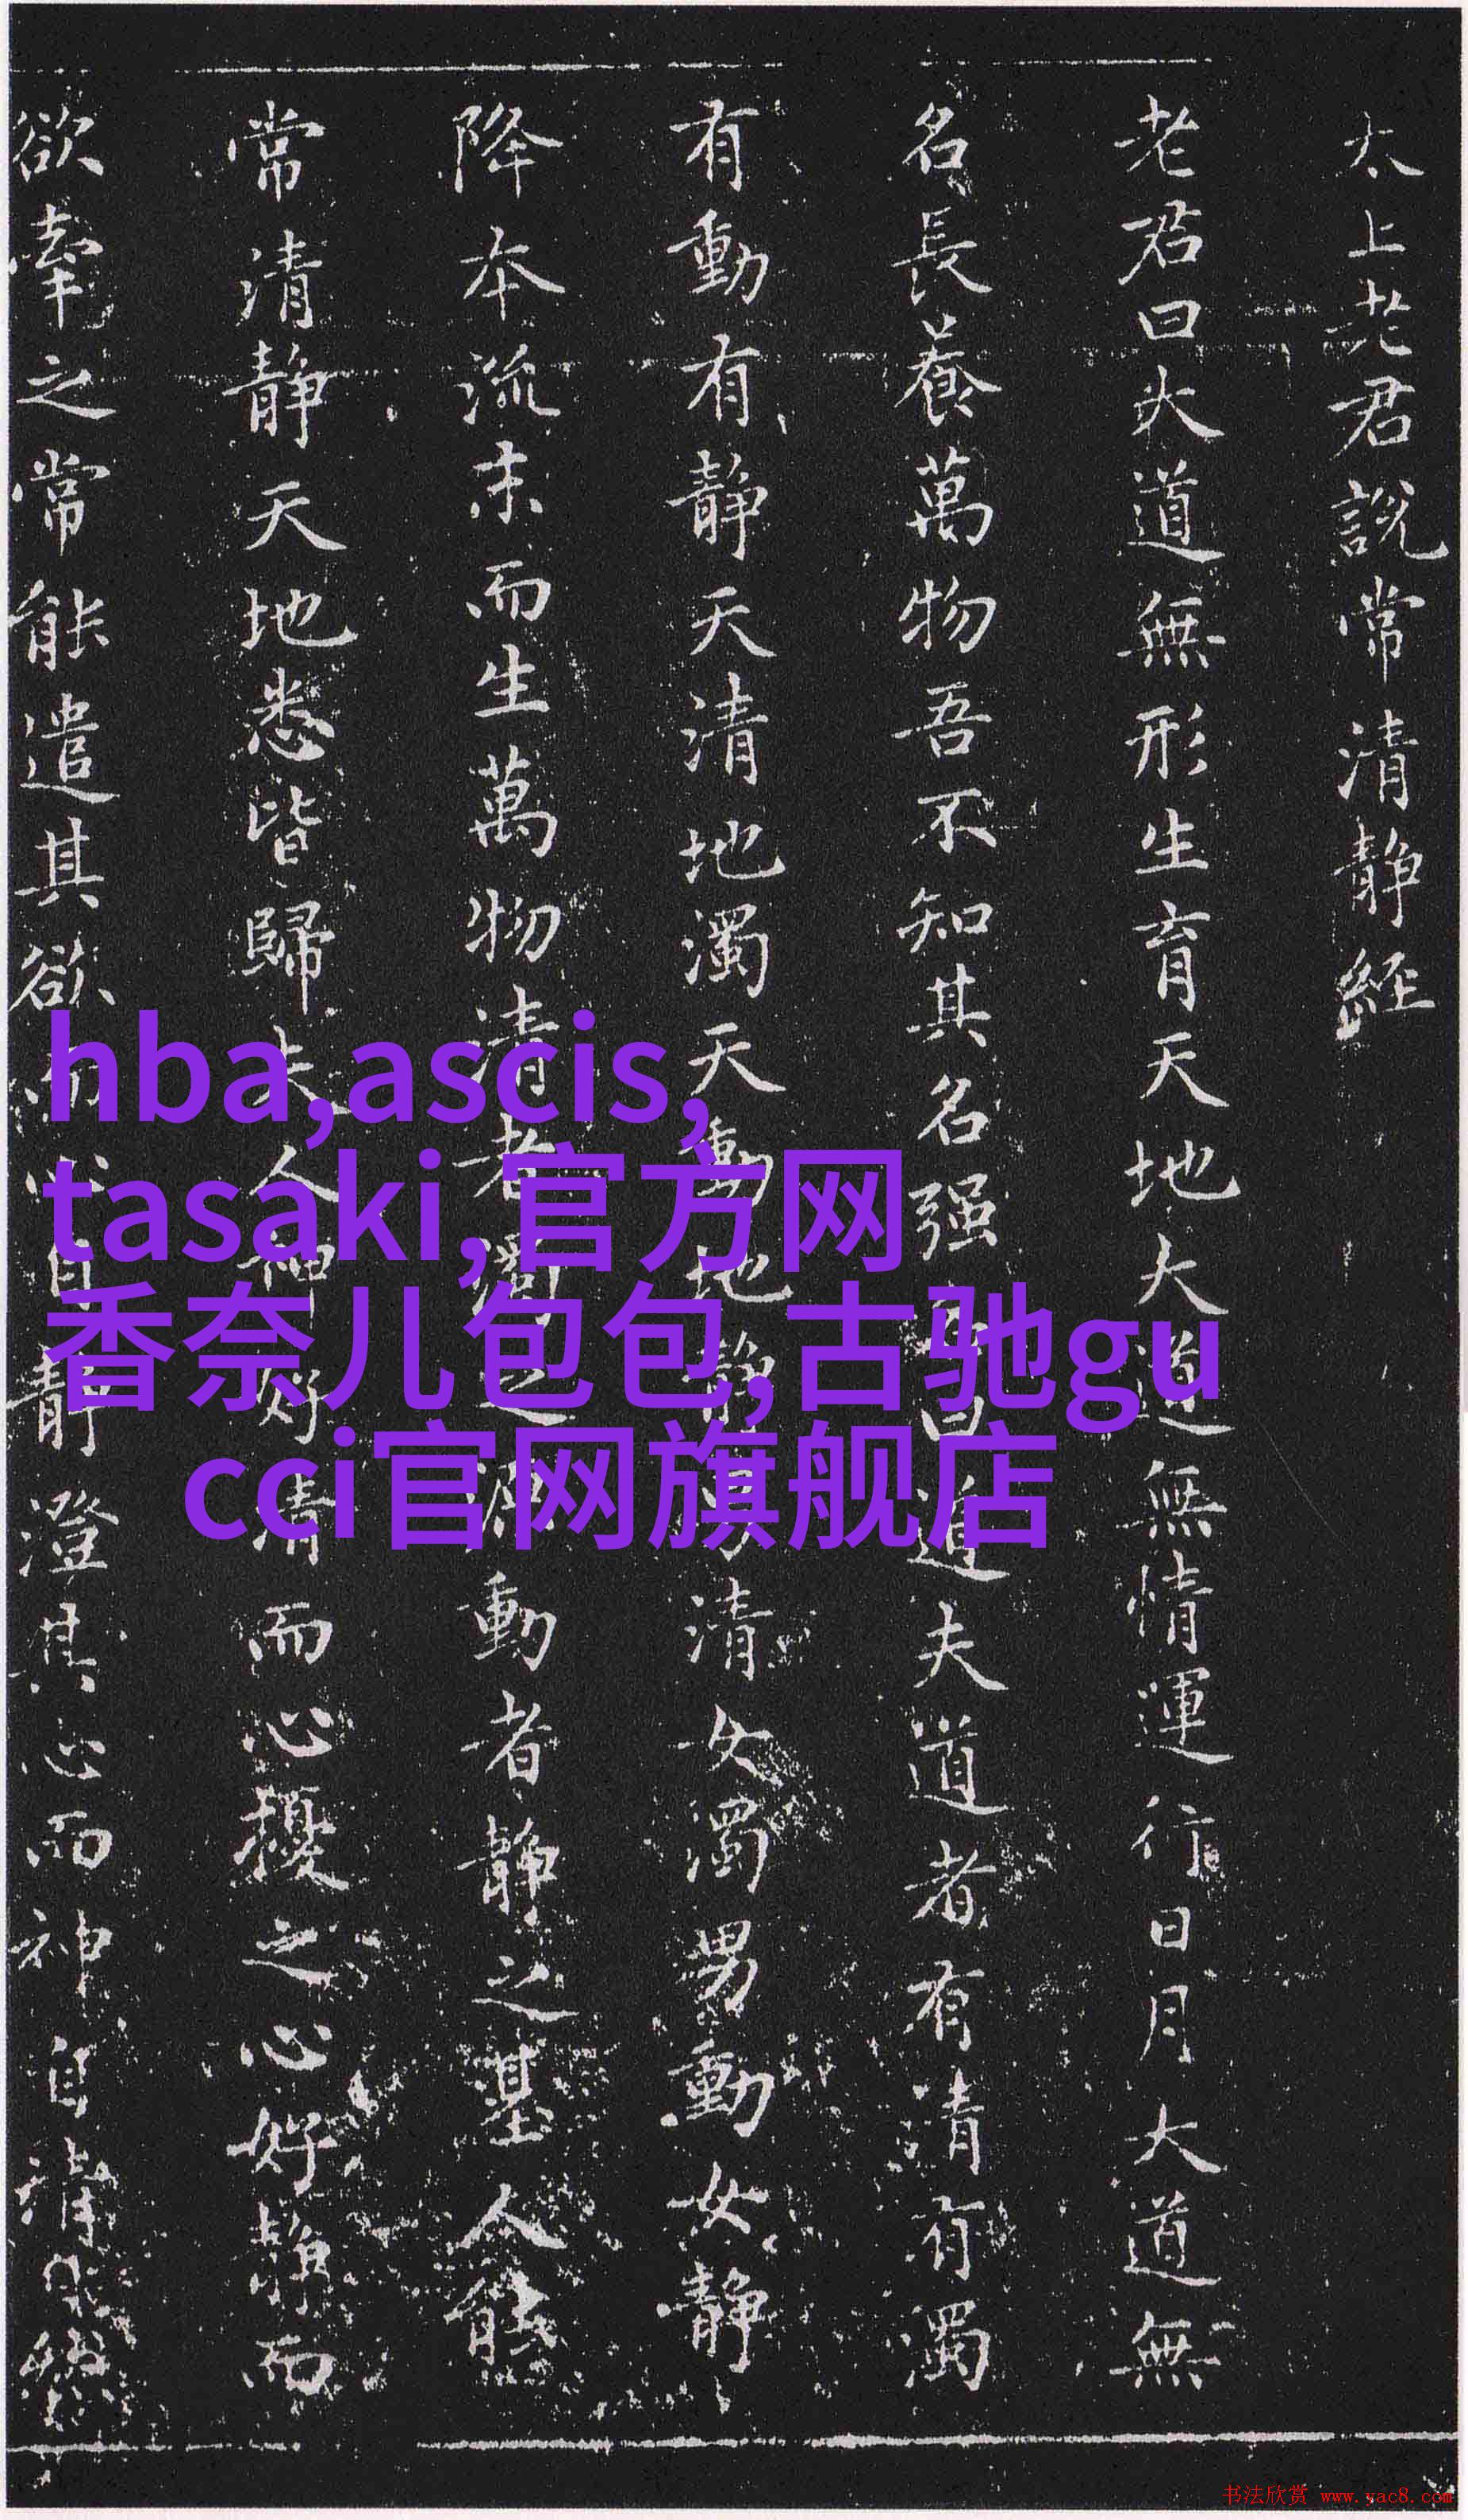 太上老君說常清靜經
老君曰大道無形生育天地大道無情運行日月大道無
名長養萬物吾不知其名强曰道夫道者有清有濁
有動有靜天清地濁天動地靜清女濁男動女靜
降本流末而生萬物清者濁之源動者靜之基人能
常清靜天地悉皆歸夫人神好清而心擾之心好靜而
欲牽之常能遣其欲而心自靜澄其心而神自清
hba,ascis,
tasaki,官方网
香奈儿包包,古驰gu
cci官网旗舰店
书法欣赏 www.yac8.com